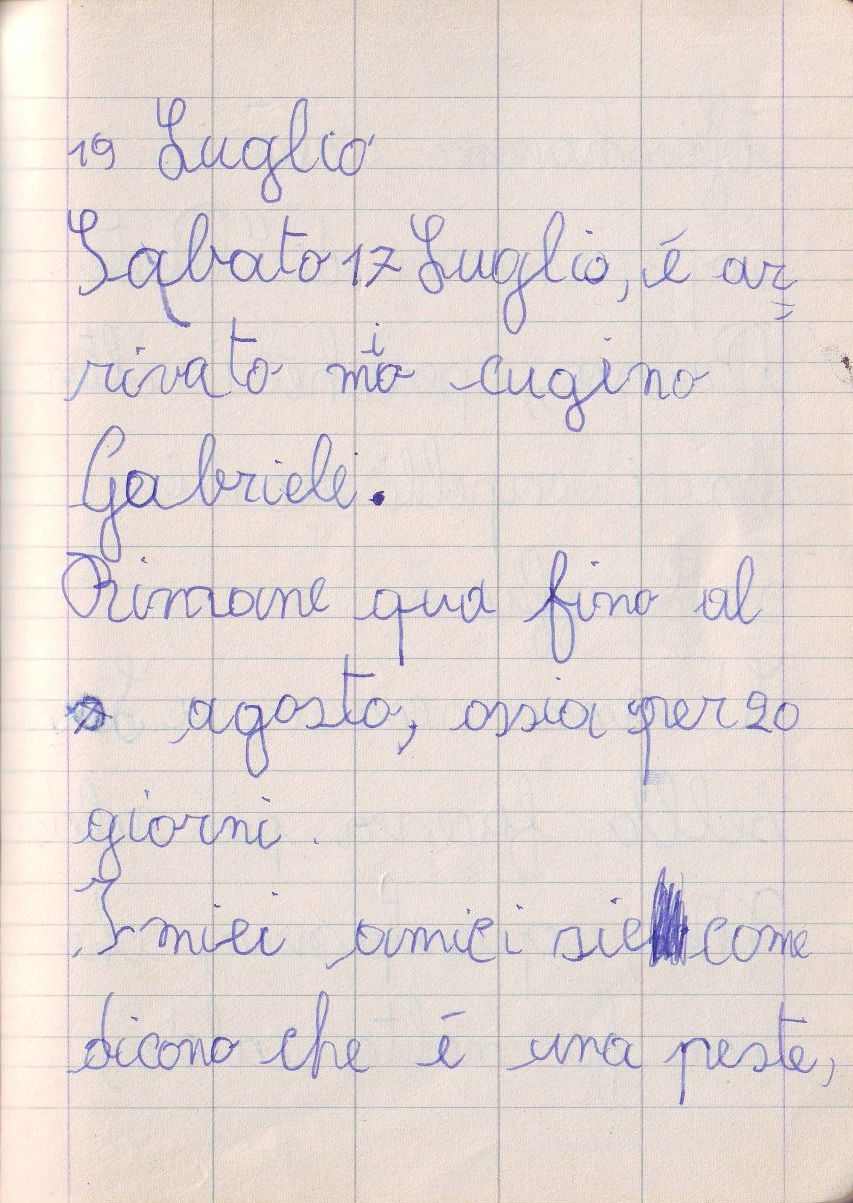 19 Luglio
Sabato 17 Luglio, é ar=
rivato mio cugino
Gabriele.
Rimane qua fino al
agosto, ossia per 20
giorni.
I miei amici sic come
dicono che é una peste,